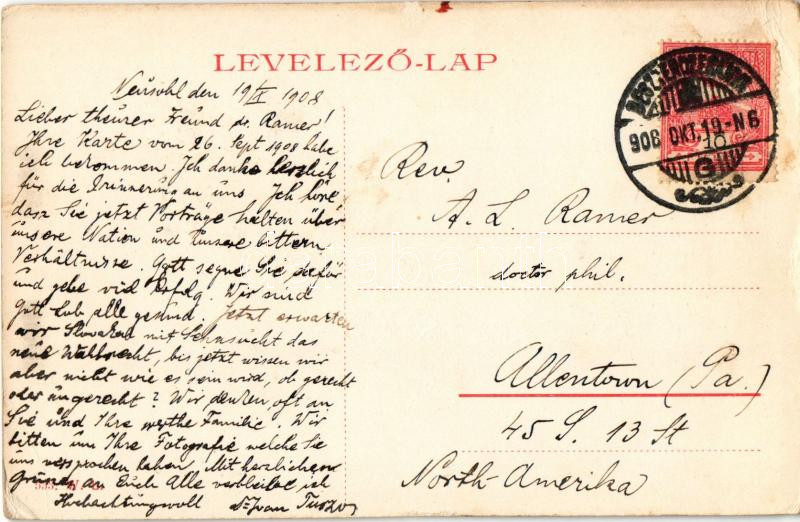 LEVELEZŐ-LAP
Neusohl den 19/X 1908
Lieber theurer Freund dr. Ramer!
Ihre Karte vom 26. Sept 1908 habe
ich bekommen. Ich danke herzlich
für die Erinnerung an uns. Ich höre
dasz Sie jetzt Vorträge halten über
unsere Nation und unsere bittern
Verhältnisse. Gott segne Sie dafür
und gebe viel Erfolg. Wir sind
Gott Lob alle gesund. Jetzt erwarten
wir Slovaken mit Sehnsucht das
neue Wahlrecht, bis jetzt wissen wir
aber nicht wie es sein wird, ob gerecht
oder ungerecht? Wir denken oft an
Sie und Ihre werthe Familie. Wir
bitten um Ihre Fotografie welche Sie
uns versprochen haben. Mit herzlichem
Gruss an Euch Alle verbleibe ich
Hochachtungsvoll Dr Ivan Turzo
BESZTERCEBÁNYA
908 OKT. 19.-N6
10
G
Rev.
A. L. Ramer
doctor phil.
Allentown (Pa.)
45 S. 13 St
North-Amerika